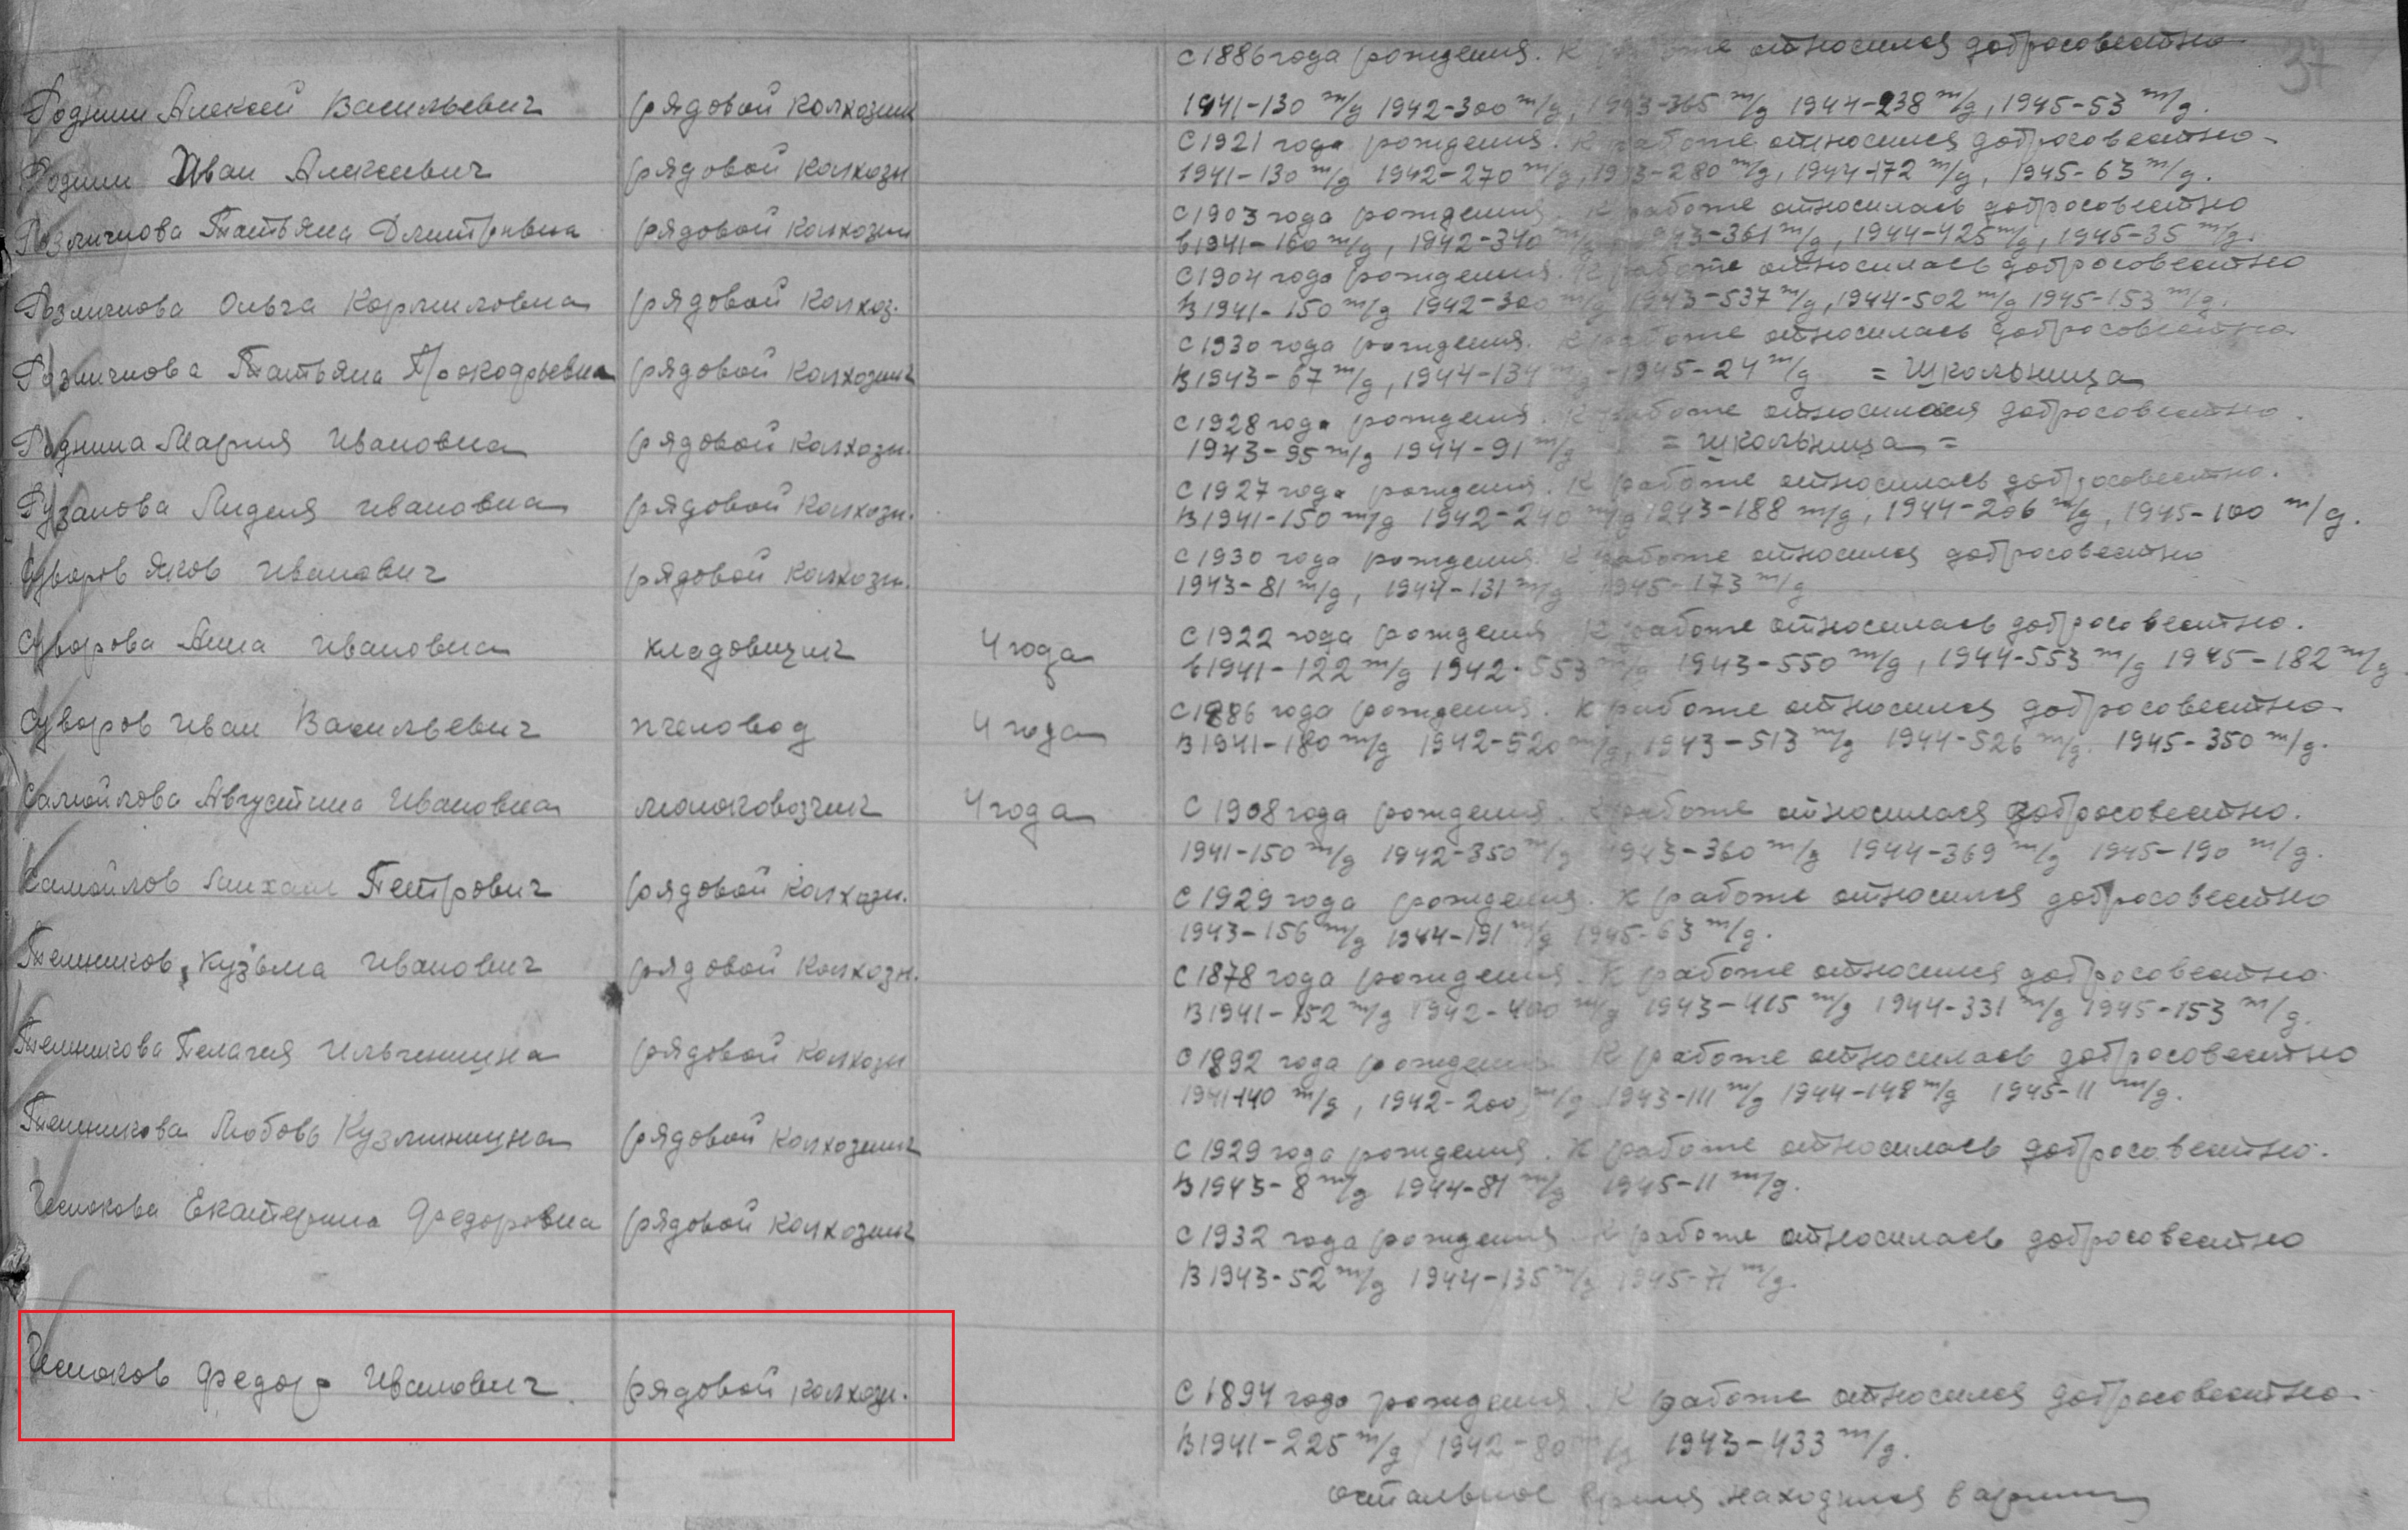 37
С 1886 года рождения. К работе относился добросовестно
Роднин Алексей Васильевич рядовой колхозник 1941-130 т/д 1942-300 т/д, 1943-365 т/д 1944-238 т/д, 1945-53 т/д.
С 1921 года рождения. К работе относился добросовестно-
Роднин Иван Алексеевич рядовой колхозн 1941-130 т/д 1942-270 т/д, 1943-280 т/д, 1944-172 т/д, 1945-63 т/д.
С 1903 года рождения. К работе относилась добросовестно
Татьяна Дмитривна рядовой колхозн в 1941-160 т/д, 1942-340 т/д 1943-361 т/д, 1944-425 т/д, 1945-35 т/д.
С 1904 года рождения. К работе относилась добросовестно
Ольга Корниловна рядовой колхоз. В 1941-150 т/д 1942-300 т/д 1943-537 т/д, 1944-502 т/д 1945-153 т/д.
С 1930 года рождения. К работе относилась добросовестно.
Татьяна Прокофьевна рядовой колхозник В 1943-67 т/д, 1944-134 т/д -1945-24 т/д = Школьница
С 1928 года рождения. К работе относилася добросовестно.
Роднина Мария Ивановна рядовой колхозн. 1943-95 т/д 1944-91 т/д = школьница =
С 1927 года рождения. К работе относилась добросовестно.
Рузанова Лидия Ивановна рядовой колхозн. В 1941-150 т/д 1942-240 т/д 1943-188 т/д, 1944-206 т/д, 1945-100 т/д.
С 1930 года рождения. К работе относился добросовестно
Суворов Яков Иванович рядовой колхозн. 1943-81 т/д, 1944-131 т/д 1945-173 т/д
С 1922 года рождения К работе относилась добросовестно.
Суворова Анна Ивановна кладовщик 4 года в 1941-122 т/д 1942-553 т/д 1943-550 т/д, 1944-553 т/д 1945-182 т/д
С 1886 года рождения. К работе относился добросовестно-
Суворов Иван Васильевич пчеловод 4 года В 1941-180 т/д 1942-520 т/д, 1943-513 т/д 1944-526 т/д. 1945-350 т/д.
Самойлова Августина Ивановна молоковозчик 4 года С 1908 года рождения. К работе относилася добросовестно.
1941-150 т/д 1942-350 т/д 1943-360 т/д 1944-369 т/д 1945-190 т/д.
Самойлов Михаил Петрович рядовой колхозн. С 1929 года рождения. К работе относился добросовестно
1943-156 т/д 1944-191 т/д 1945-63 т/д.
Кузьма Иванович рядовой колхозн. С 1878 года рождения. К работе относился добросовестно.
В 1941-152 т/д 1942-400 т/д 1943-415 т/д 1944-331 т/д 1945-153 т/д.
Пелагия Ильинишна рядовой колхозн С 1892 года рождения К работе относилась добросовестно
1941-140 т/д, 1942-200 т/д 1943-111 т/д 1944-148 т/д 1945-11 т/д.
Любовь Кузминишна рядовой колхозник С 1929 года рождения. К работе относилась добросовестно.
В 1943-8 т/д 1944-81 т/д 1945-11 т/д.
Екатерина Федоровна рядовой колхозник С 1932 года рождения К работе относилась добросовестно
В 1943-52 т/д 1944-135 т/д 1945-71 т/д.
Федор Иванович рядовой колхозн. С 1894 года рождения. К работе относился добросовестно.
В 1941-225 т/д 1942-80 т/д 1943-433 т/д.
остальное время находился в армии